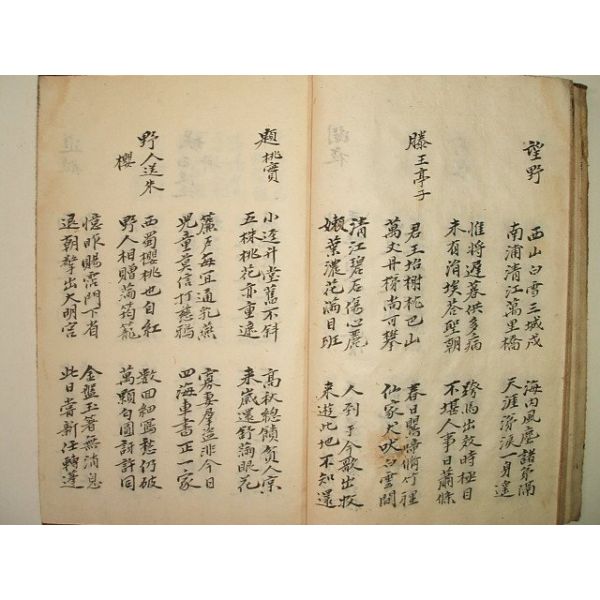 望野
西山白雪三城戍
南浦清江萬里橋
海內風塵諸弟隔
天涯涕淚一身遙
惟將遲暮供多病
未有涓埃答聖朝
跨馬出郊時極目
不堪人事日蕭條
滕王亭子
君王坮榭枕巴山
萬丈丹梯尚可攀
春日鶯啼脩竹裡
仙家犬吠白雲間
清江碧石傷心麗
嫩葉濃花滿目班
人到于今歌出牧
來遊此地不知還
題桃實
小逕升堂舊不斜
五株桃花亦重遮
高秋總饋貧人宲
來歲還舒滿眼花
簾戶每宜通乳燕
兒童莫信打慈鴉
寡妻羣盜非今日
四海車書正一家
野人送朱櫻
西蜀櫻桃也自紅
野人相贈滿筠籠
數回細寫愁仍破
萬顆勻圓訝許同
憶昨賜霑門下省
退朝擎出大明宮
金盤玉箸無消息
此日嘗新任轉蓬